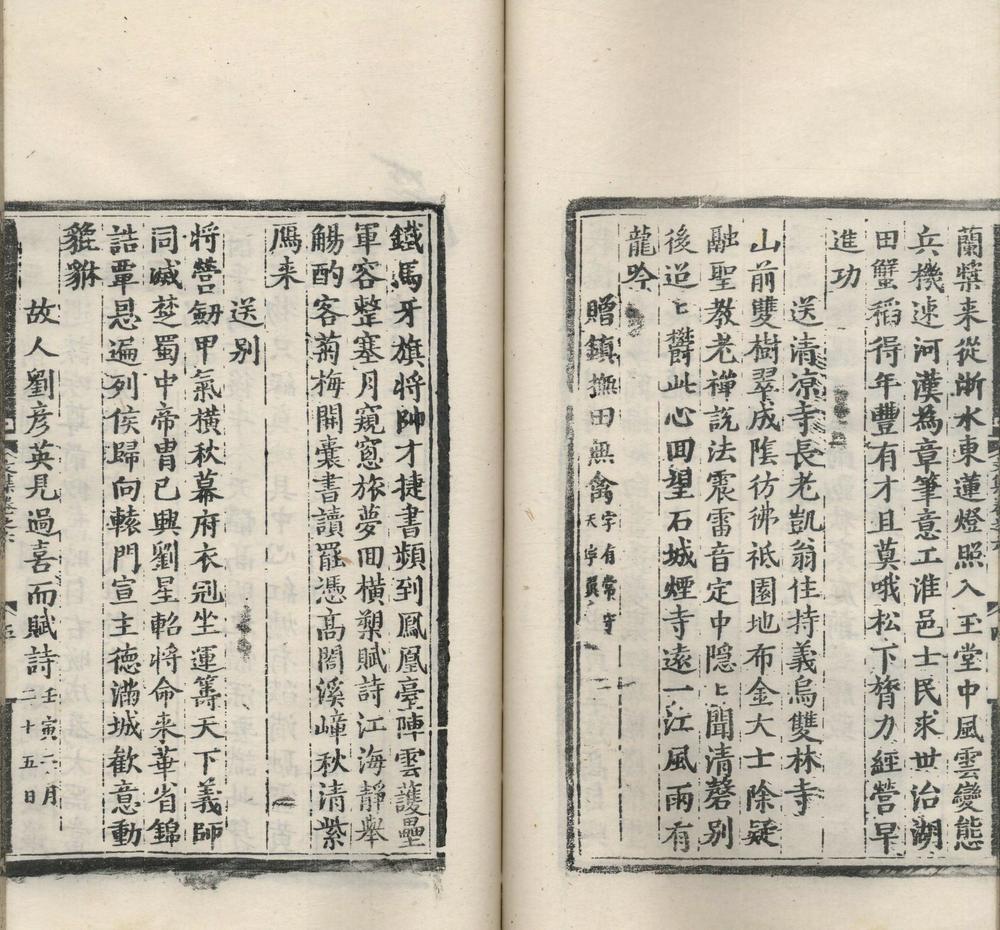 蘭槳来從浙水東蓮燈照入玉堂中風雲變態
兵機速河漢為章筆意工淮邑士民求世治湖
田蟹稻得年豐有才且莫哦松下膂力經營早
進功
送清凉寺長老凱翁住持義烏雙林寺
山前雙樹翠成隂彷彿祇園地布金大士除疑
融聖教老禪説法震雷音定中隱〻聞清磬别
後迢〻欝此心回望石城煙寺遠一江風雨有
龍吟
贈鎮撫田無禽
鐵馬牙旗将帥才捷書頻到鳳凰臺陣雲護壘
軍容整塞月窺窓旅夢回橫槊賦詩江海靜舉
觴酌客菊梅開囊書讀罷憑髙閣溪嶂秋清紫
鴈来
送别
将營劒甲氣橫秋幕府衣冠坐運籌天下義師
同㓕楚蜀中帝胄已興劉星軺将命来華省錦
誥覃恩遍列侯歸向轅門宣主德滿城歡意動
貔貅
故人劉彦英見過喜而賦詩壬寅二月
二十五日